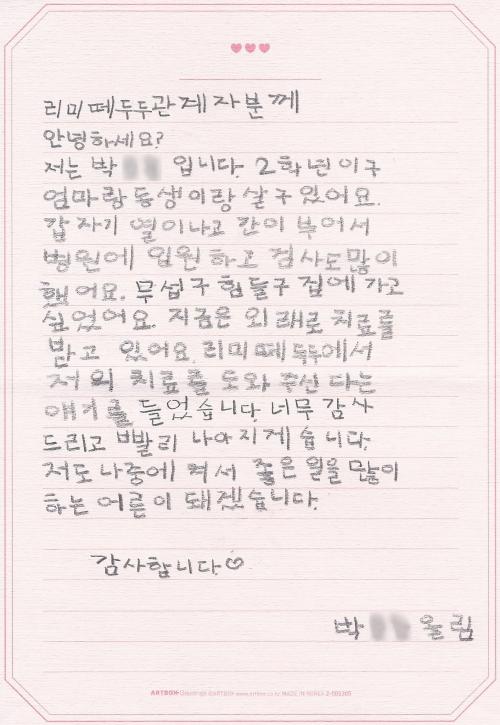 리미떼두두관계자분께
안녕하세요?
저는 박 입니다. 2학년이구
엄마랑 동생이랑 살구있어요.
갑자기 열이나고 간이 부어서
병원에 입원하고 검사도많이
했어요. 무섭구 힘들구 집에 가고
싶었어요. 지금은 외래로 치료를
받고 있어요. 리미떼두두에서
저의 치료를 도와 주신다는
얘기를 들었습니다. 너무 감사
드리고 빨리 나아지게습니다.
저도 나중에 커서 좋은 일을 많이
하는 어른이 돼겠습니다.
감사합니다♡
박 울림
ARTBOX www.artbox.co.kr MADE IN KOREA